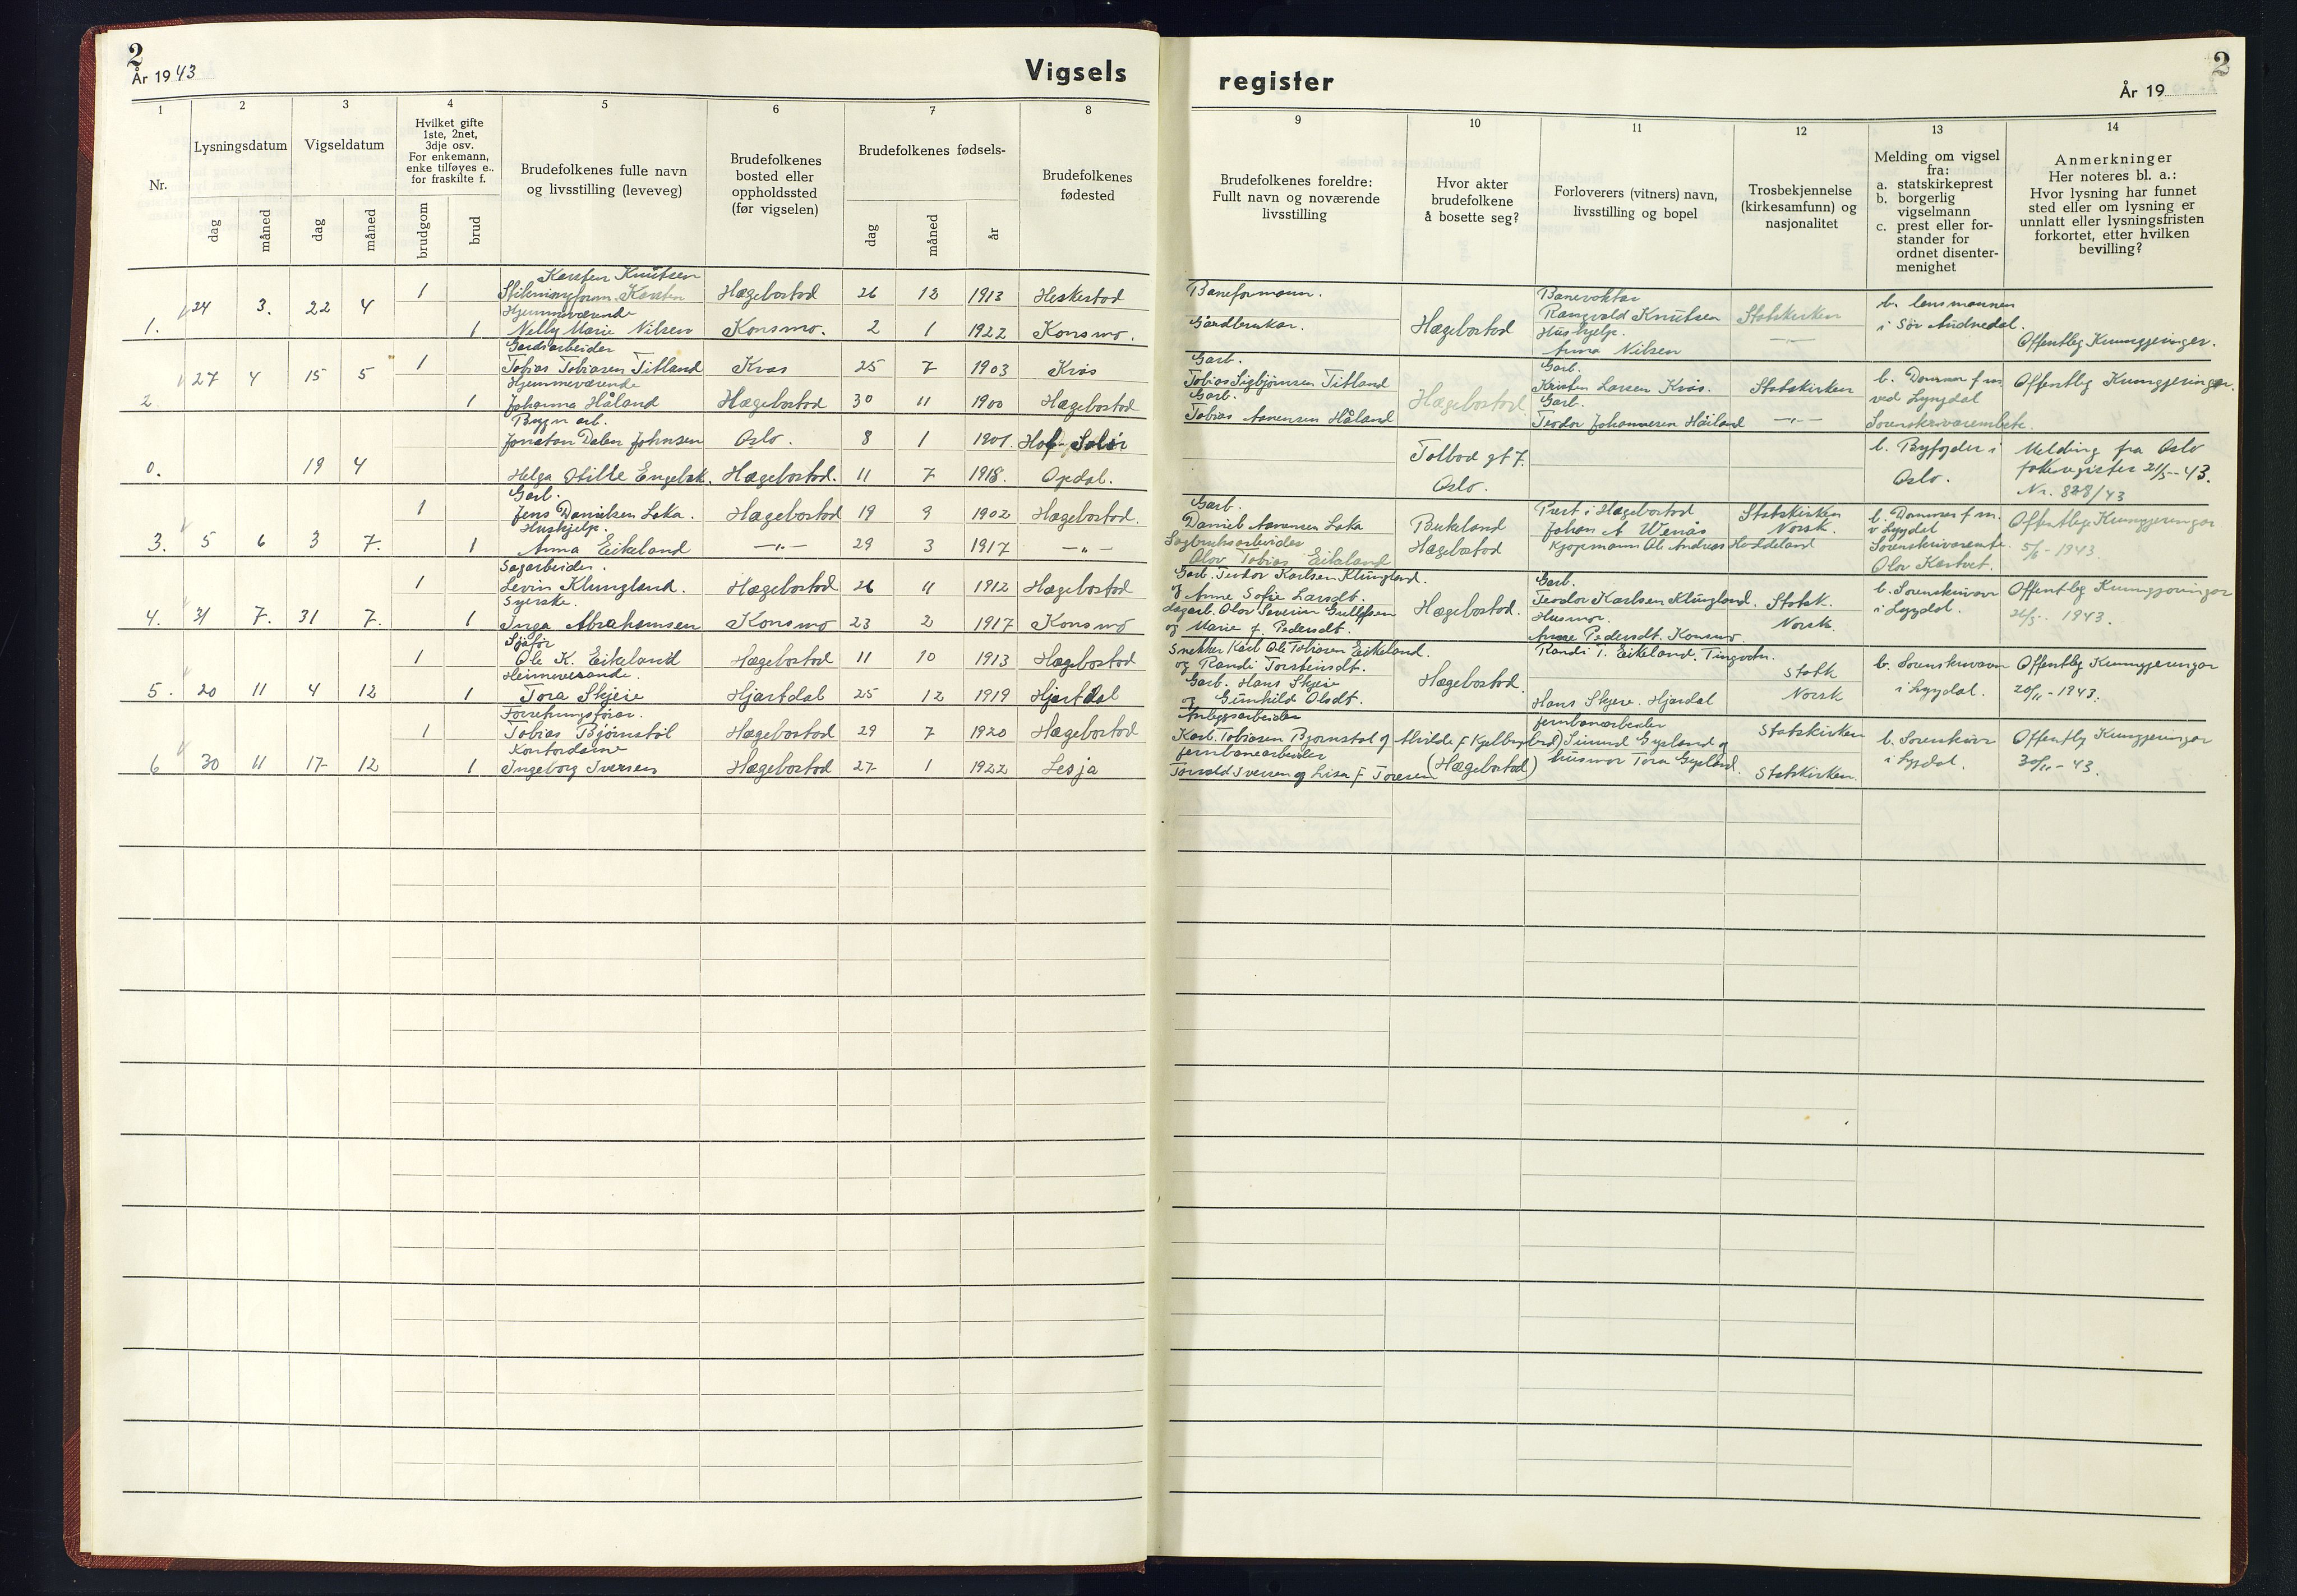 2
År 19 43
Vigsels
1
2
3
4
5
6
7
8
Nr.
Lysningsdatum
Vigseldatum
Hvilket gifte
1ste, 2net,
3dje osv.
For enkemann,
enke tilføyes e..
for fraskilte f.
Brudefolkenes fulle navn
og livsstilling (leveveg)
Brudefolkenes
bosted eller
oppholdssted
(før vigselen)
Brudefolkenes fødsels-
Brudefolkenes
fødested
dag
måned
dag
måned
brudgom
brud
dag
måned
år
Karsten Knutsen
1 Karsten Hægebostad 26 12 1913 Heskestad
1. 24 3. 22 4
Hjemmeværende
1 Nelly Marie Nilsen Konsmo. 2 1 1922 Konsmo.
Gardsarbeider
1 Tobias Tobiasen Titland Kvås 25 7 1903 Kvås
2 27 4 15 5
Hjemmeværende
1 Johanna Håland Hægebostad 30 11 1900 Hægebostad
Bygn arb.
Jonatan Dalen Johnsen Oslo. 8 1 1901 Hof, Solør
0. 19 4
Helga Otilie Engebak. Hægebostad. 11 7 1918. Opdal.
Garb.
1 Jens Danielsen Loka. Hægebostad 19 9 1902 Hægebostad.
Huskjelp.
3. 5 6 3 7. 1 Anna Eikeland —"— 29 3 1917 —"—
Sagarbeider.
1 Levin Klungland. Hægebostad 26 11 1912 Hægebostad
Syerske.
4. 31 7. 31 7. 1 Inga Abrahamsen Konsmo 23 2 1917 Konsmo
Sjåfør
1 Ole K. Eikeland Hægebostad 11 10 1913 Hægebostad
Heimeverande.
5. 20 11 4 12 1 Tora Skjeie Hjartdal 25 12 1919 Hjartdal
Forretningsfører.
1 Tobias Bjørnstøl Hægebostad 29 7 1920 Hægebostad
Kontordame
6 30 11 17 12 1 Ingeborg Iversen Hægebostad 27 1 1922 Lesja
register
2
År 19
9
10
11
12
13
14
Brudefolkenes foreldre:
Fullt navn og noværende
livsstilling
Hvor akter
brudefolkene
å bosette seg?
Forloverers (vitners) navn,
livsstilling og bopel
Trosbekjennelse
(kirkesamfunn) og
nasjonalitet
Melding om vigsel
fra:
a. statskirkeprest
b. borgerlig
vigselmann
c. prest eller for-
stander for
ordnet disenter-
menighet
Anmerkninger
Her noteres bl. a.:
Hvor lysning har funnet
sted eller om lysning er
unnlatt eller lysningsfristen
forkortet, etter hvilken
bevilling?
Baneformann.
Gardbrukar.
Hægebostad
Banevoktar
Rangvald Knutsen
Hushjelp.
Anna Nilsen
Statskirken
—"—
b. lensmannen
i Sør Audnedal.
Offentleg Kunngjeringer.
Garb.
Tobias Sigbjørnsen Titland
Garb.
Tobias Asmensen Håland
Hægebostad
Garb.
Kristen Larsen Kvås.
Garb.
Teodor Johannesen Håiland
Statskirken
—"—
b. Dommer f m.
ved Lyngdal
Sorenskrivarembete.
Offentleg Kunngjeringar.
Tolbod gt 7.
Oslo.
b. Byfogden i
Oslo.
Melding fra Oslo
folkeregister 21/5-43.
Nr. 828/43
Garb.
Daniel Asmensen Loka
Sagbruksarbeider
Olav Tobias Eikeland
Birkeland
Hægebostad
Prest i Hægebostad
Johan A Wenås
Kjøpmann Ole Andreas Haddeland
Statskirken
Norsk.
b. Dommer f m.
v Lyngdal
Sorenskrivaremb.
Olav Kastvet.
Offentlege Kunngjeringar
5/6-1943.
Garb. Teodor Karlsen Klungland.
og Anne Sofie Larsdt.
dagarb. Olav Severin Gullefsen
og Marie f. Pedersdt.
Hægebostad.
Garb.
Teodor Karlsen Klungland.
Husmor.
Anne Pedersdt. Konsmo
Statsk.
Norsk.
b. Sorenskrivar
i Lyngdal.
Offentleg Kunngjeringar
1943.
Snekker Karl Ole Tobiasen Eikeland.
og Randi Torsteinsdt.
Garb. Hans Skjeie
og Gunhild Olsdt.
Hægebostad.
Randi T. Eikeland. Tingvatn.
Hans Skjeie. Hjardal
Statk
Norsk
b. Sorenskrivaren
i Lyngdal.
Offentleg Kunngjeringar
20/11-1943.
Anleggsarbeider
Karl Tobiasen Bjørnstøl og
jernbanearbeider
Torvald Iversen og Lisa f Toresen
(Hægebostad)
jernbanearbeider
Simund Gysland og
husmor Tora Gysland.
Statskirken
Statskirken.
b. Sorenskrivar
i Lyngdal.
Offentleg Kunngjeringar
30/11-43.